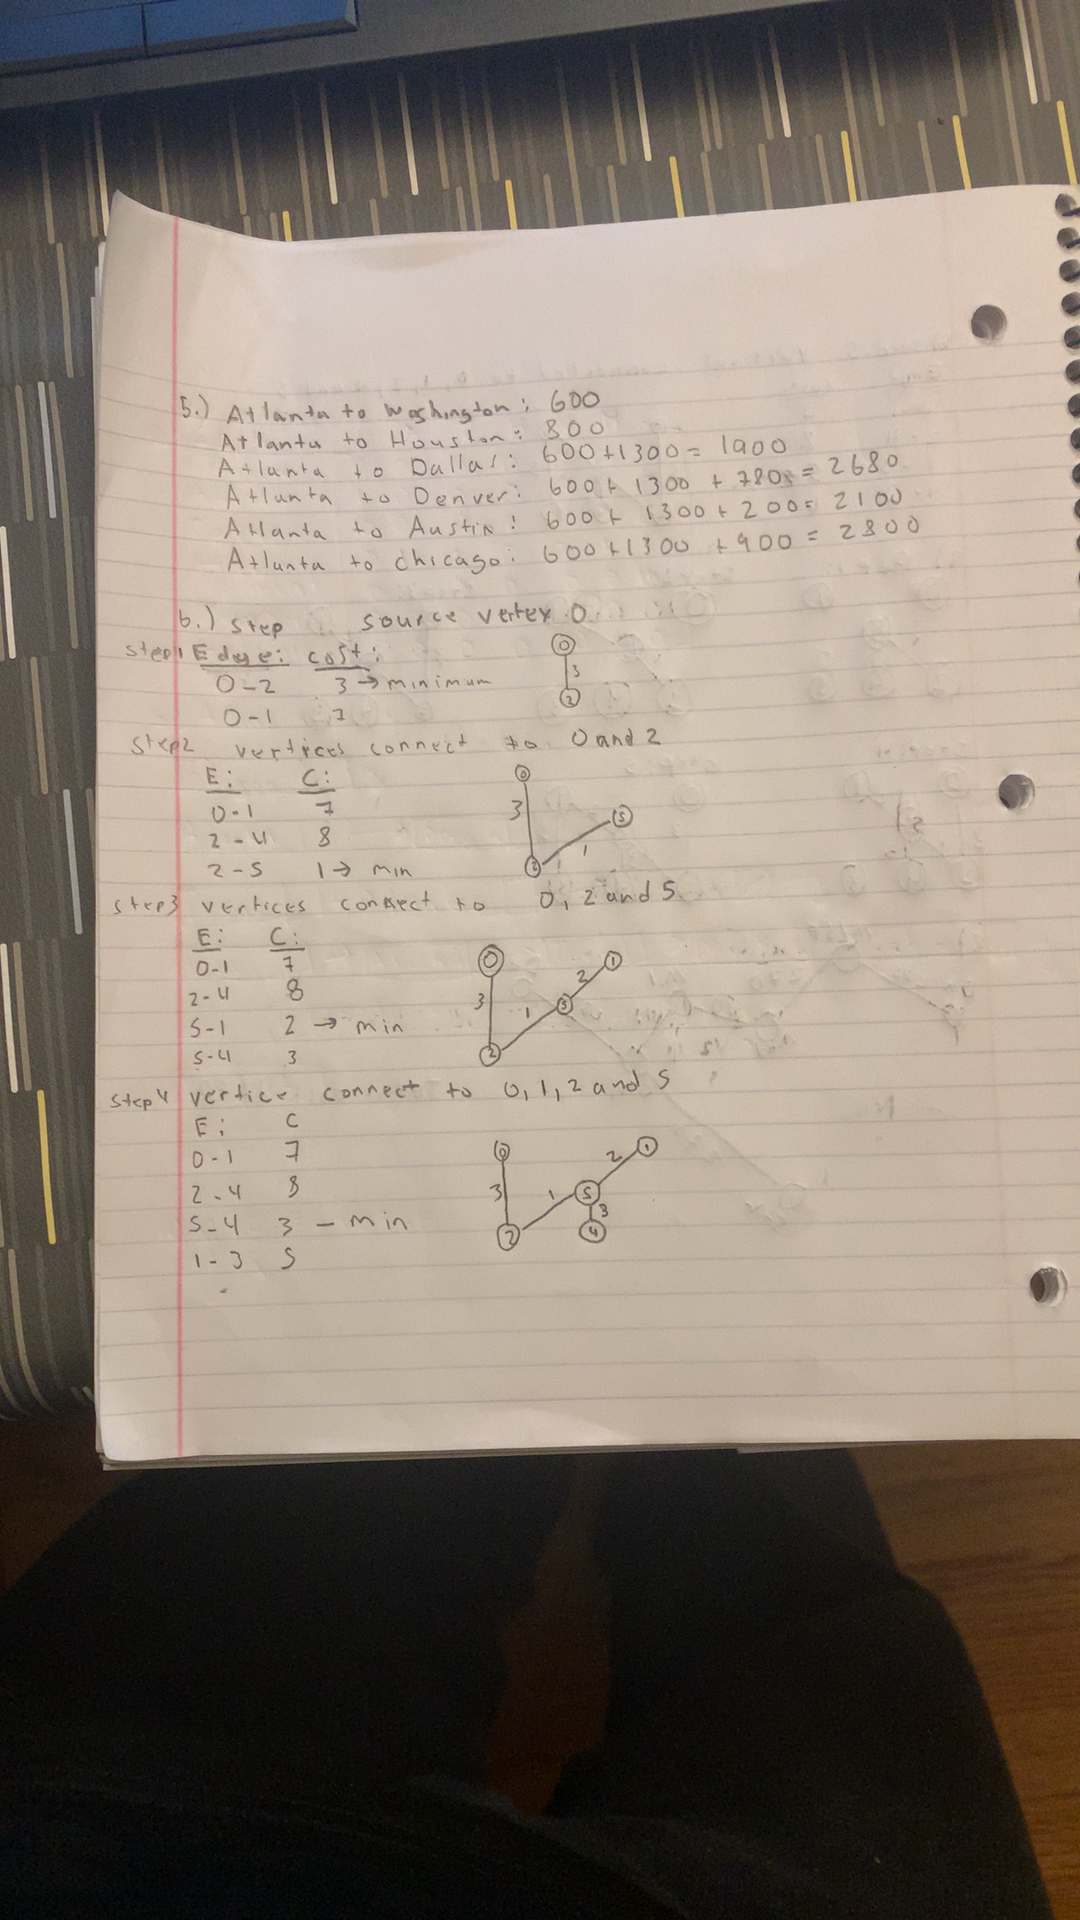 5.) Atlanta to Washington: 600
Atlanta to Houston: 800
Atlanta to Dallas: 600+1300 = 1900
Atlanta to Denver: 600 + 1300 + 780 = 2680
Atlanta to Austin: 600 + 1300 + 200 = 2100
Atlanta to chicago: 600 + 1300 + 900 = 2800
6.) step source vertex 0
step1 Edge: cost:
0-2 3 → minimum
0-1 7
0
3
2
step2 vertices connect to 0 and 2
E: C:
0-1 7
2-4 8
2-5 1 → min
0
3
5
1
2
step3 vertices connect to 0, 2 and 5
E: C:
0-1 7
2-4 8
5-1 2 → min
5-4 3
0
1
2
3
5
1
2
step4 vertice connect to 0, 1, 2 and 5
E: C
0-1 7
2-4 8
5-4 3 - min
1-3 5
0
1
2
3
1
5
3
2
4